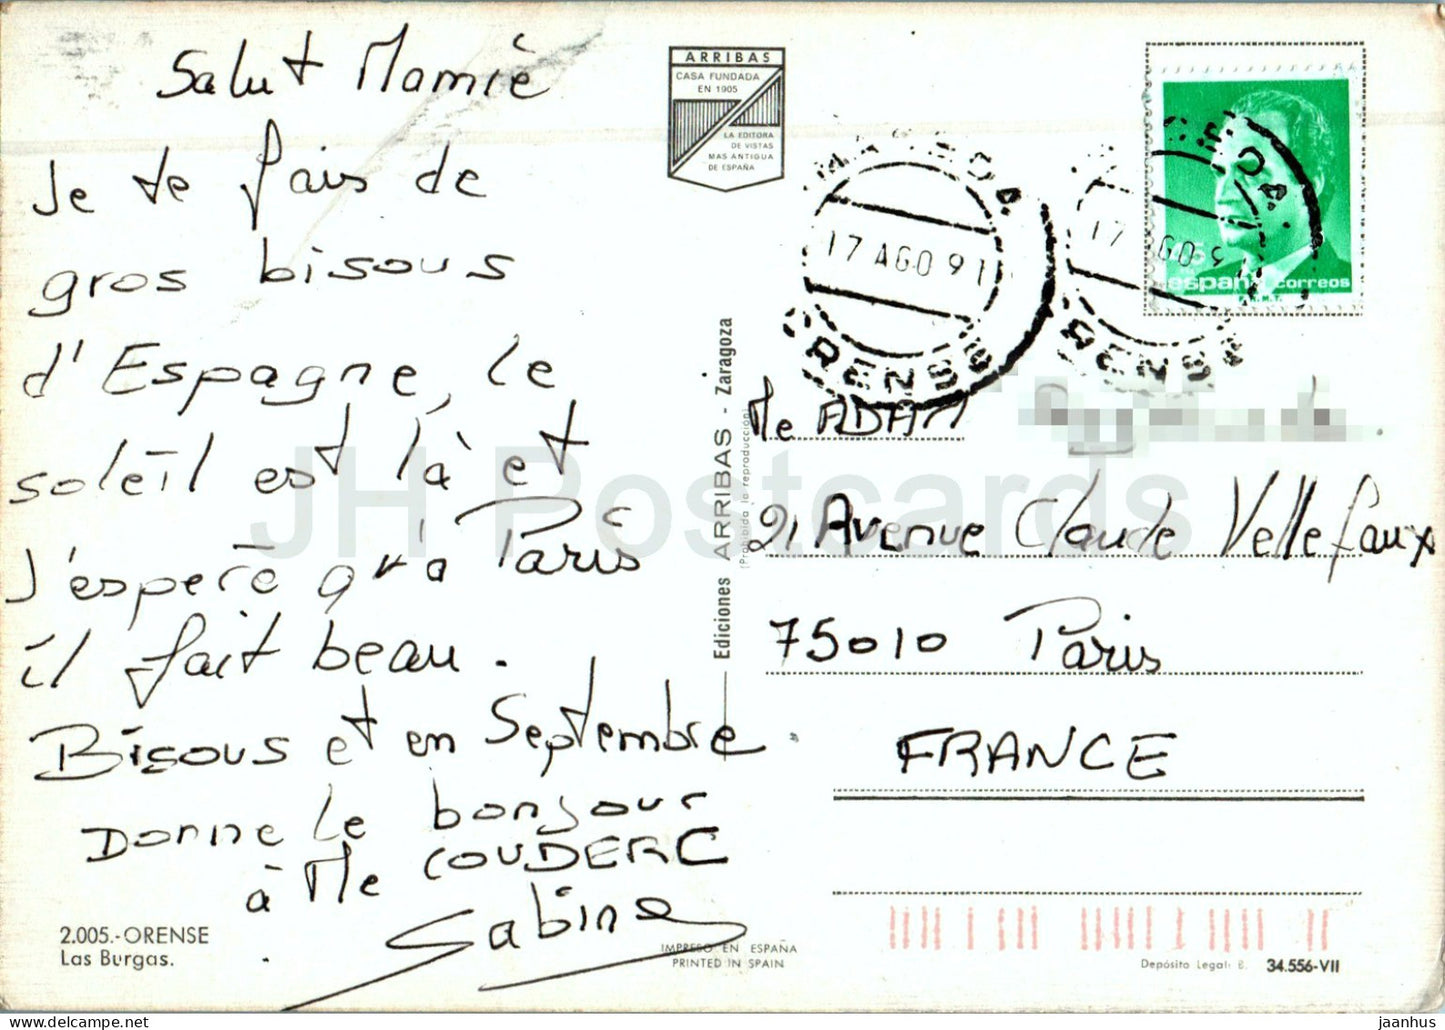 Salut Mamiè
Je te fais de
gros bisous
d'Espagne, le
soleil est là et
J'espère qu'à Paris
il fait beau.
Bisous et en Septembre
Donne le bonjour
à Me COUDERC
Sabine
2.005.-ORENSE
Las Burgas.
ARRIBAS
CASA FUNDADA
EN 1905
LA EDITORA
DE VISTAS
MAS ANTIGUA
DE ESPAÑA
Ediciones ARRIBAS - Zaragoza
(Prohibida la reproducción)
17 AGO 91
ORENSE
17 AGO 9
ORENSE
españa correos
Me ADAM
21 Avenue Claude Vellefaux
75010 Paris
FRANCE
IMPRESO EN ESPAÑA
PRINTED IN SPAIN
Depósito Legal: B. 34.556-VII
JH Postcards
jaanhus.com